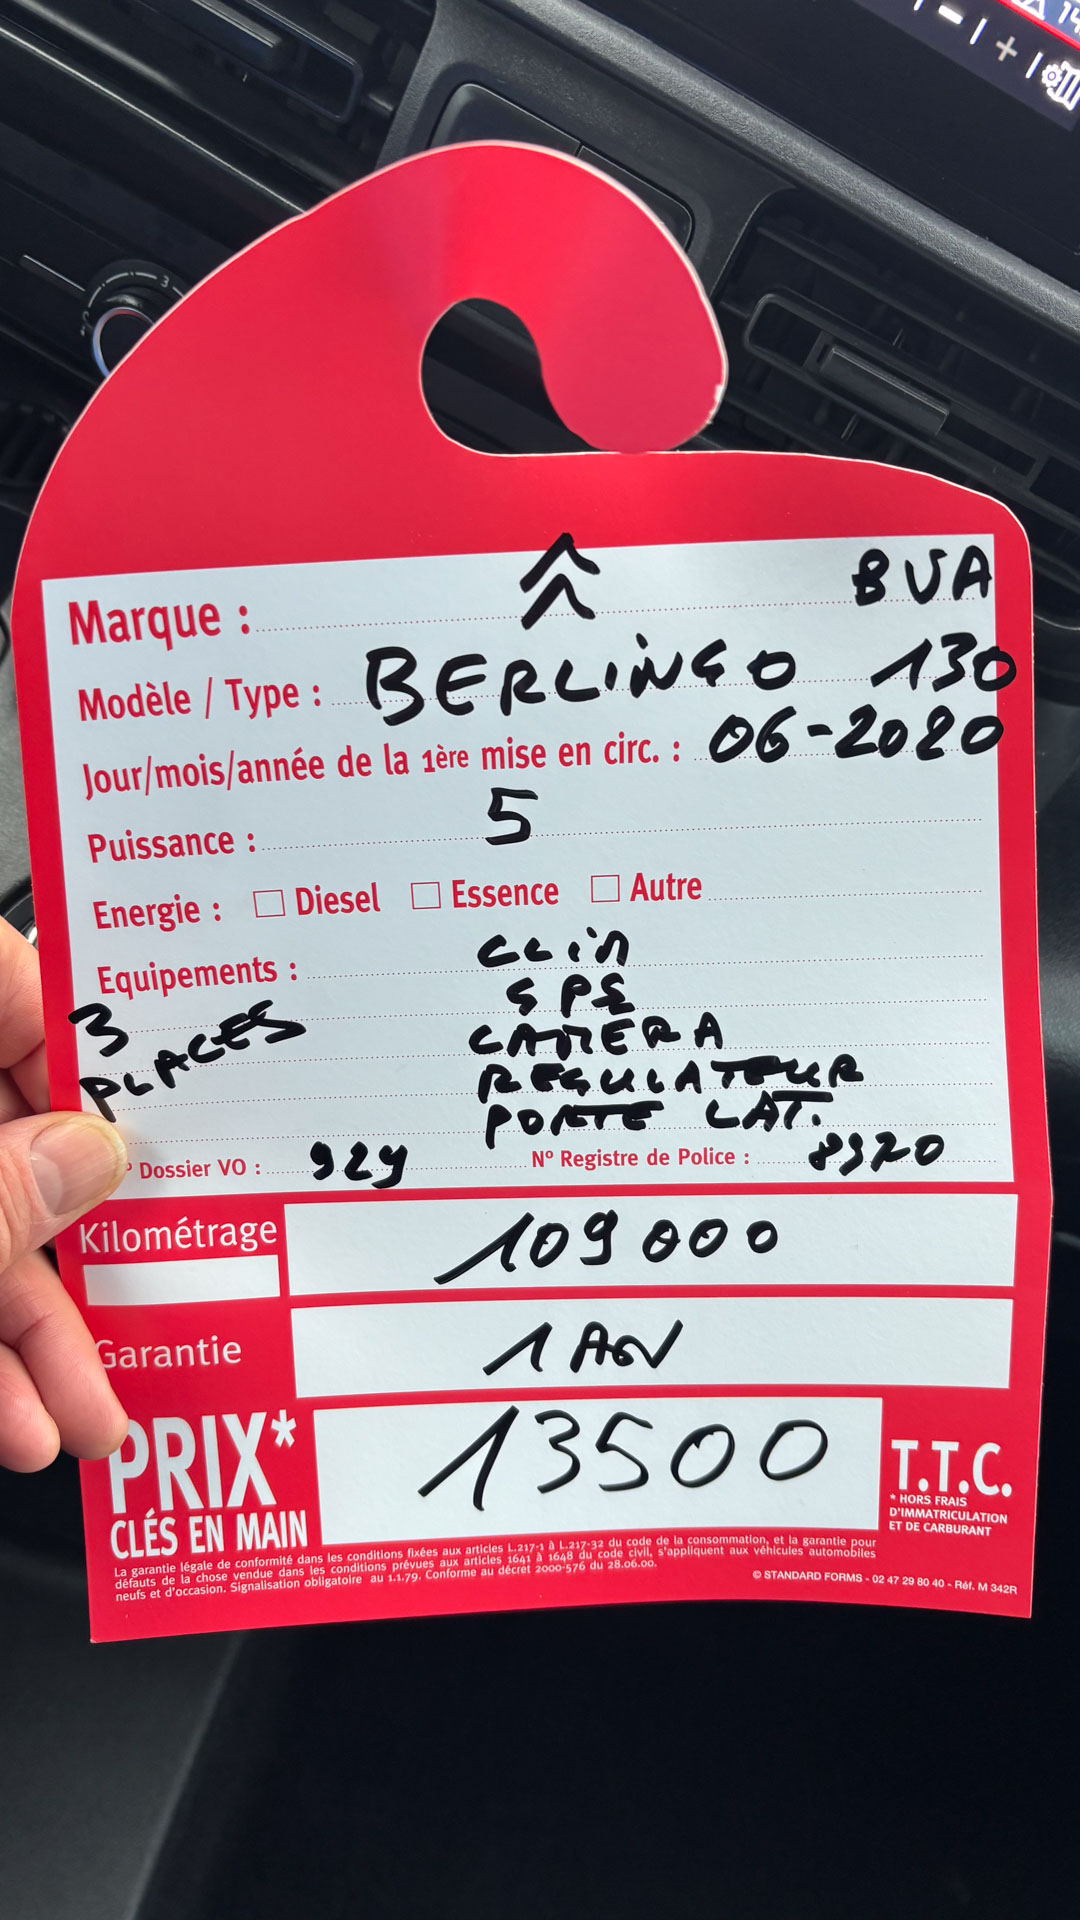 14
- | + |
3
Marque : BVA
Modèle / Type : BERLINGO 130
Jour/mois/année de la 1ère mise en circ. : 06-2020
Puissance : 5
Energie : Diesel Essence Autre
Equipements : CLIM
GPS
3 PLACES
CAMERA
REGULATEUR
PORTE LAT.
° Dossier VO : 929 N° Registre de Police : 8920
Kilométrage 109000
Garantie 1 AN
PRIX* 13500 T.T.C.
CLÉS EN MAIN
* HORS FRAIS
D'IMMATRICULATION
ET DE CARBURANT
La garantie légale de conformité dans les conditions fixées aux articles L.217-1 à L.217-32 du code de la consommation, et la garantie pour
défauts de la chose vendue dans les conditions prévues aux articles 1641 à 1648 du code civil, s'appliquent aux véhicules automobiles
neufs et d'occasion. Signalisation obligatoire au 1.1.79. Conforme au décret 2000-576 du 28.06.00.
© STANDARD FORMS - 02 47 29 80 40 - Réf. M 342R